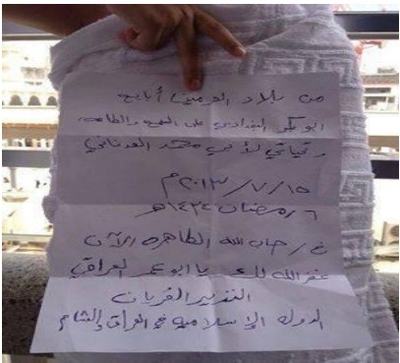 من بلاد الحرمين أبايع
ابو بكر البغدادي على السمع والطاعه
وتحياتي لأبي محمد العدناني
٢٠١٣/٧/١٥م
٦ رمضان ١٤٣٤هـ
رحاب الله الطاهره الآن
غفر الله لك يا ابو عمر العراقي
النذير العريان
الدولة الإسلامية في العراق والشام